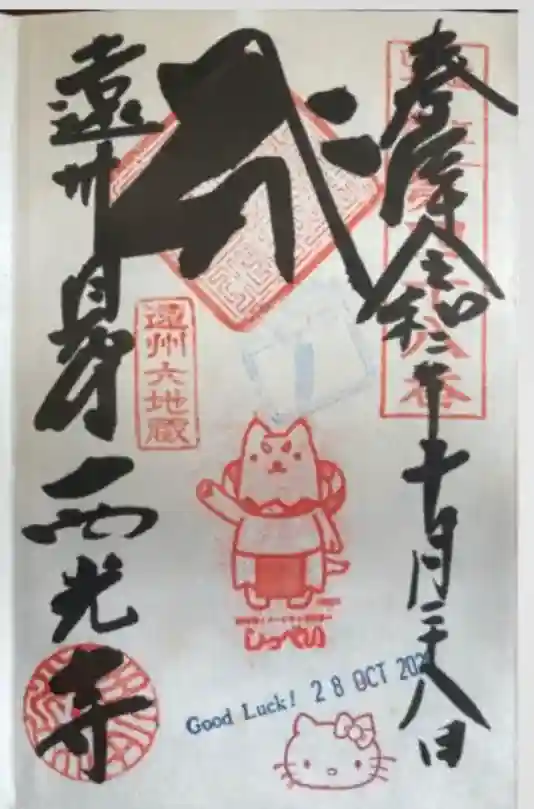 奉拝令和二年十月二十八日
遠州見付
西光寺
遠州六地蔵
しっぺい
Good Luck! 28 OCT